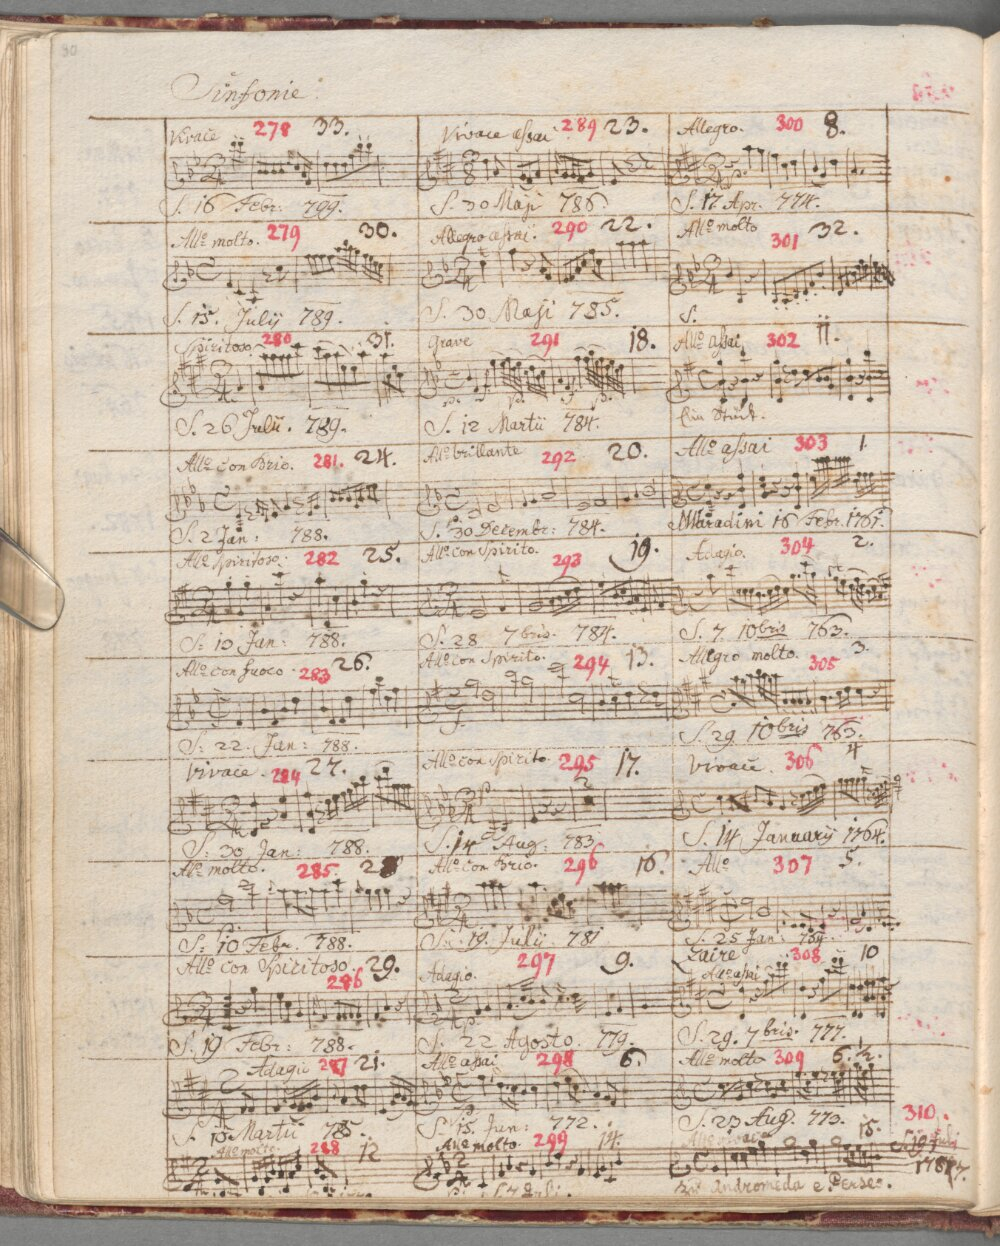 30
Sinfonie.
Vivace 278 33.
S. 16 Febr: 799.
All:o molto. 279 30.
S. 15. Julij 789.
Spiritoso 280 31.
S. 26 Julii. 789.
All:o con Brio. 281. 24.
S. 2 Jan: 788.
All:o Spiritoso. 282 25.
S: 13 Jan: 788.
All:o con fuoco. 283 26.
S: 22. Jan: 788.
Vivace. 284 27.
S: 30 Jan: 788.
All:o molto. 285. 28
S: 10 Febr. 788.
All:o con Spiritoso. 29.
286
S. 19 Febr: 788.
Adagio 287 21.
S. 13 Martii 785.
All:o molto. 288 12
Vivace assai 289 23.
S. 30 Maji 786
Allegro assai. 290 22.
S. 30 Maji 785.
Grave 291 18.
S. 12 Martii 784.
All:o brillante 292 20.
S. 30 Decembr: 784.
All:o con Spirito. 293 19.
S. 28 7bris. 784.
All:o con Spirito. 294 13.
All:o con Spirito. 295 17.
S. 14 Aug: 783
All:o con Brio. 296 16.
S. 19. Julii 781
Adagio. 297 9.
S. 22 Agosto. 779.
All:o assai 298 6.
S. 15. Jun: 772.
All:o molto. 299 14.
Allegro. 300 8.
S. 17 Apr. 774.
All:o molto 301 32.
S.
All:o assai 302 11.
Ein Stück.
All:o assai 303 1.
Maradini 16 Febr. 1761.
Adagio. 304 2.
S. 7 10bris 763.
Allegro molto. 305 3.
S. 29. 10bris 763.
Vivace. 306 4
S. 14 Januarij 1764.
All:o 307 5.
S. 25 Jan: 764.
Zaire 308 10
All:o assai
S. 29. 7bris. 777.
All:o molto 309 6.½.
S. 23 Aug. 773.
All:o vivace 15.
310.
S 19 Julij
1787.
zu Andromeda e Perseo.